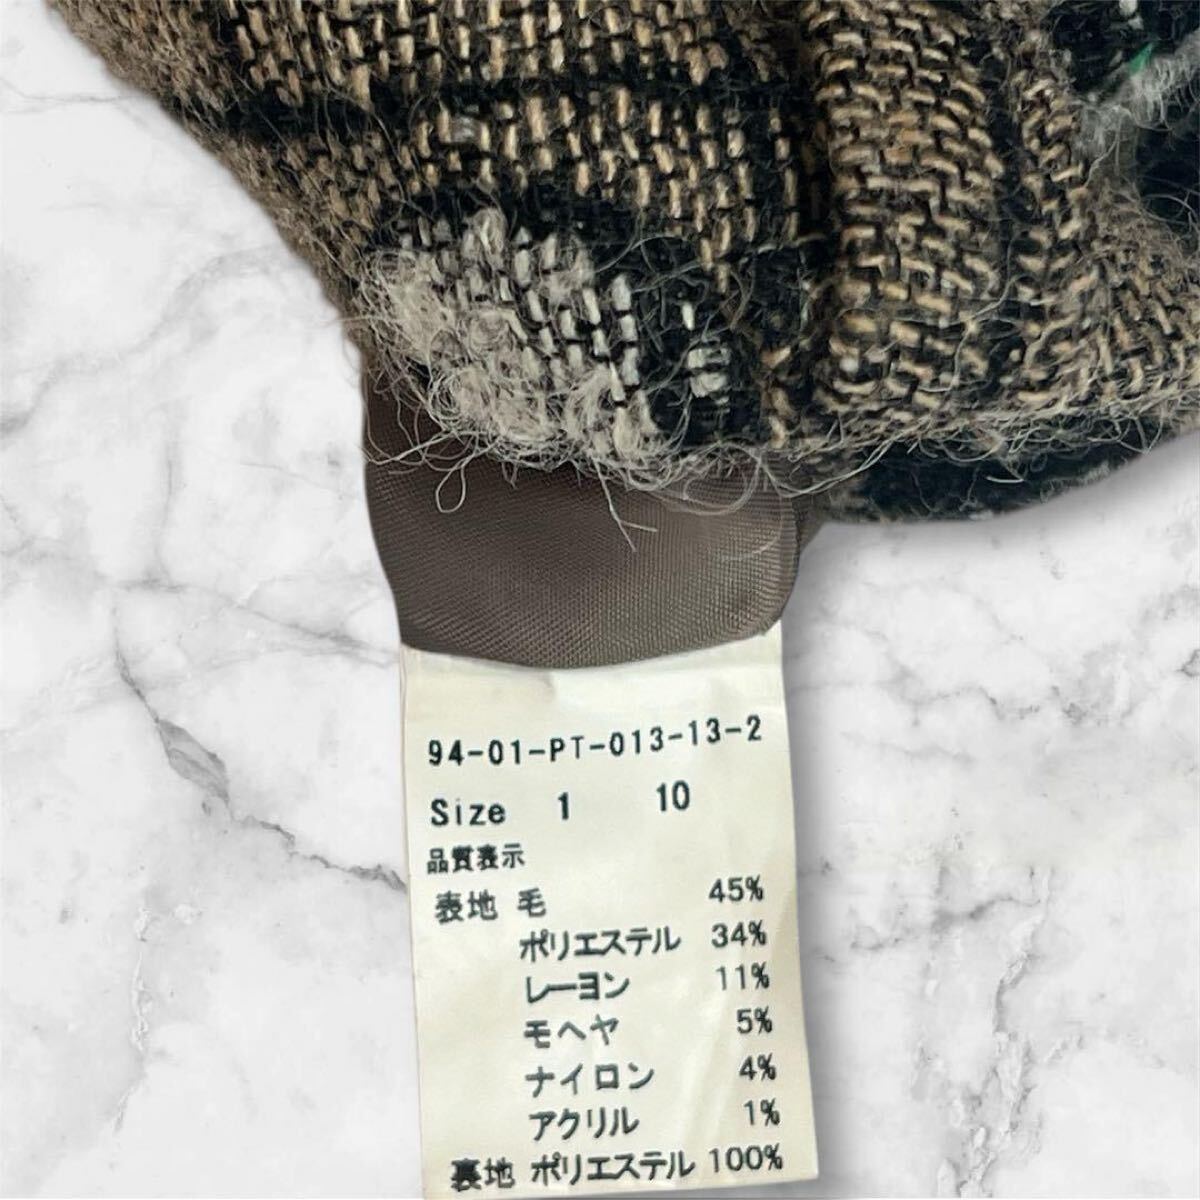 94-01-PT-013-13-2
Size 1 10
品質表示
表地 毛 45%
ポリエステル 34%
レーヨン 11%
モヘヤ 5%
ナイロン 4%
アクリル 1%
裏地 ポリエステル 100%